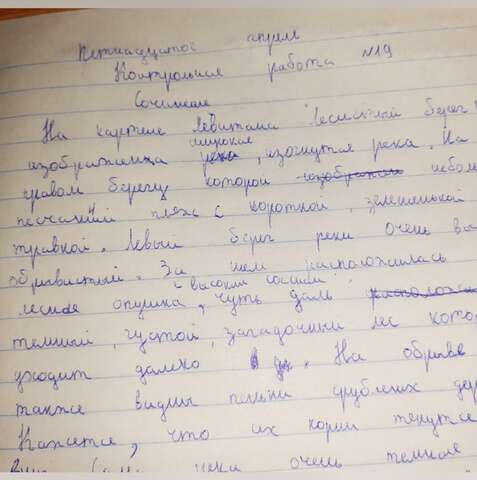 Пятнадцатое апреля
Контрольная работа N19
Сочинение
На картине Левитана Лесистый берег
широкая
изображенна река, изогнутая река. На
правом берегу которой изображен небол
песчаный пляж с короткой, зелененькой
травкой. Левый берег реки очень вы
обрывистый. За ним расположилась
с высокими соснами
лесная опушка, чуть даль располож
темный, густой, загадочный лес кото
уходит далеко. На обрыве
также видны пеньки срубленых дер
Кажется, что их корни тянутся
реки очень темное